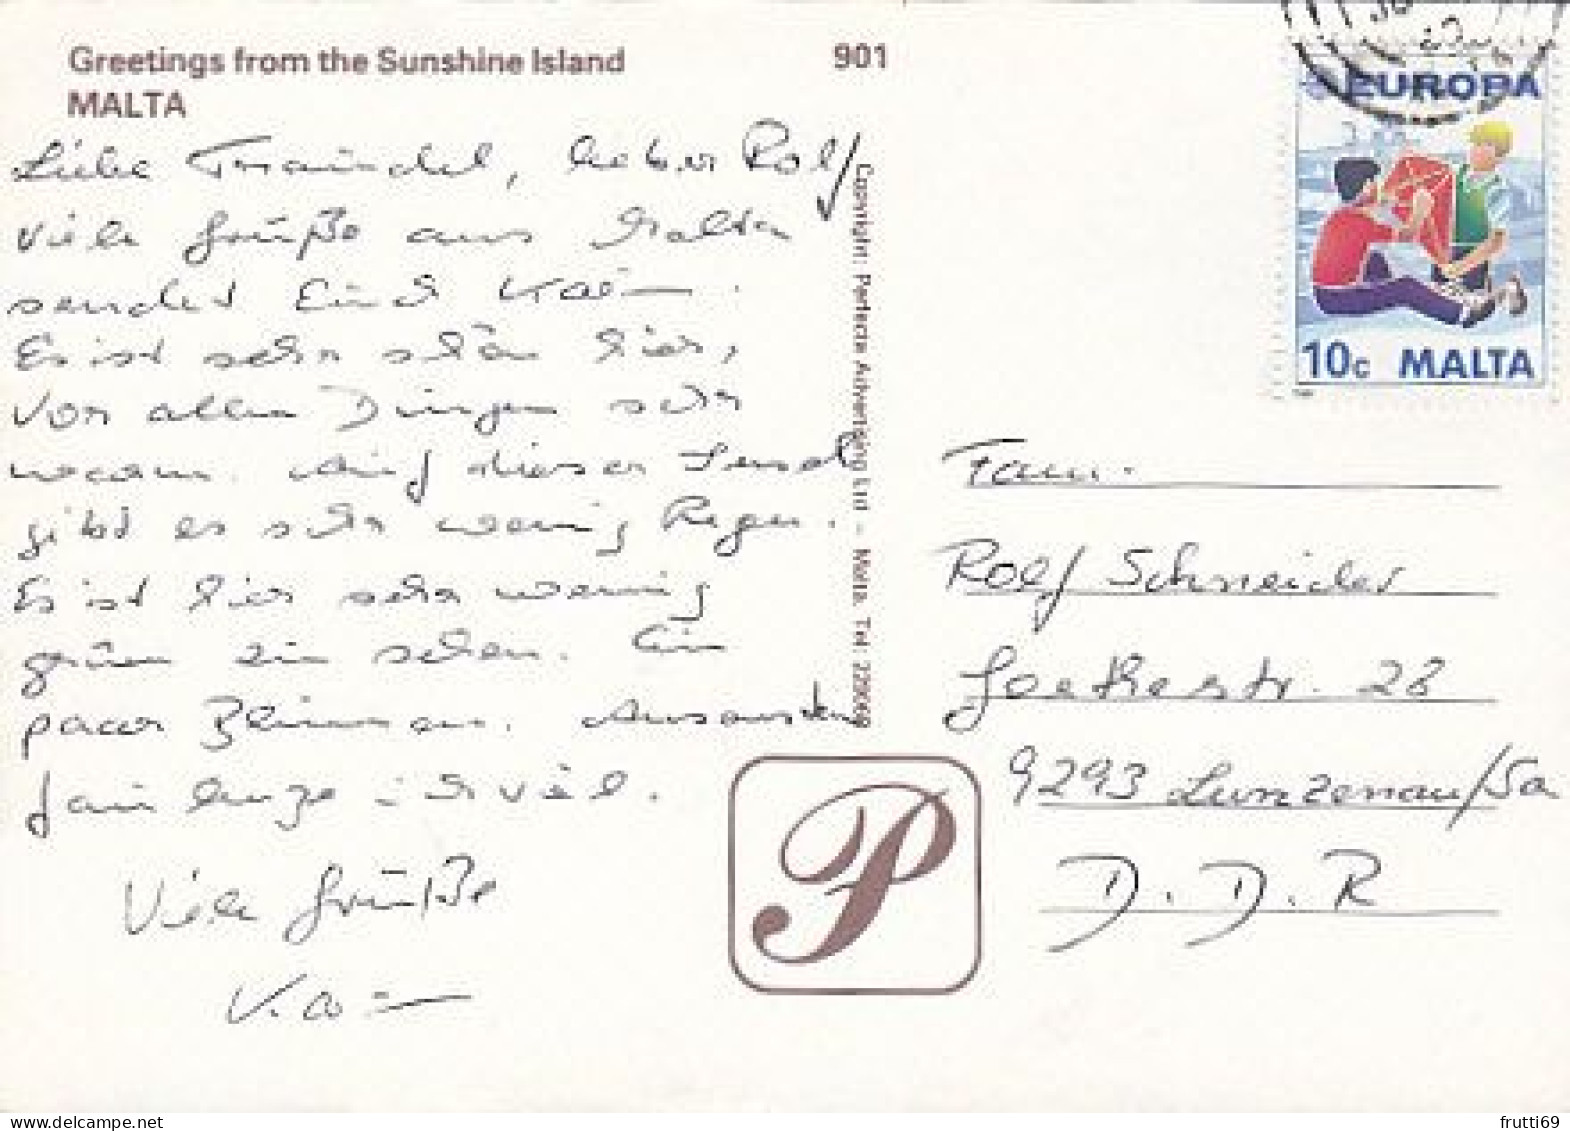 Greetings from the Sunshine Island
MALTA
901
Liebe Traudel, lieber Rolf
Viele Grüße aus Malta
sendet Euch
Es ist sehr schön hier,
vor allen Dingen sehr
warm. Auf dieser Insel
gibt es sehr wenig Regen.
Es ist hier sehr wenig
grün zu sehen. Ein
paar Blumen. Ansonsten
viel.
Viele Grüße
Copyright: Perfecta Advertising Ltd - Malta. Tel: 220069
EUROPA
10c MALTA
Fam.
Rolf Schneider
Goethestr. 28
9293 Lunzenau/Sa
D.D.R
P
frutti69